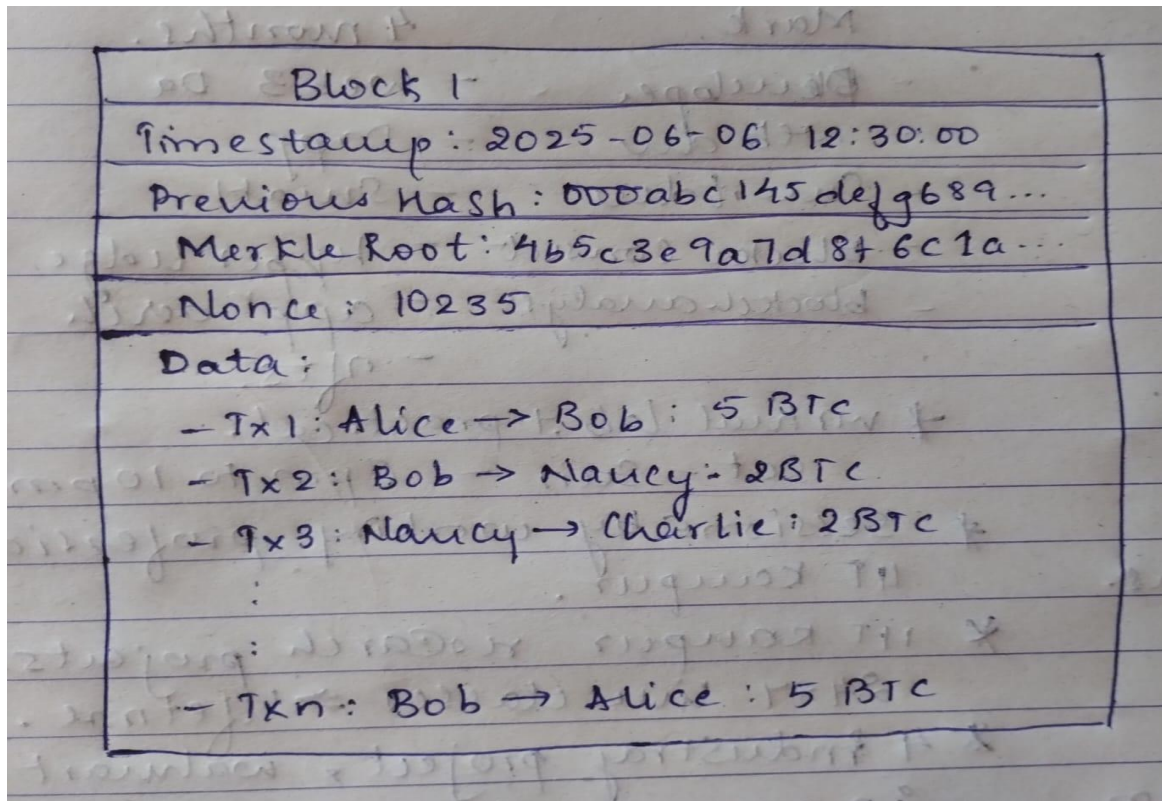 Block 1
Timestamp: 2025-06-06 12:30:00
Previous Hash: 000abc145defg689...
Merkle Root: 4b5c3e9a7d8f6c1a...
Nonce: 10235
Data:
- Tx1: Alice → Bob: 5 BTC
- Tx2: Bob → Nancy: 2BTC
- Tx3: Nancy → Charlie: 2BTC
:
:
- Txn: Bob → Alice: 5 BTC